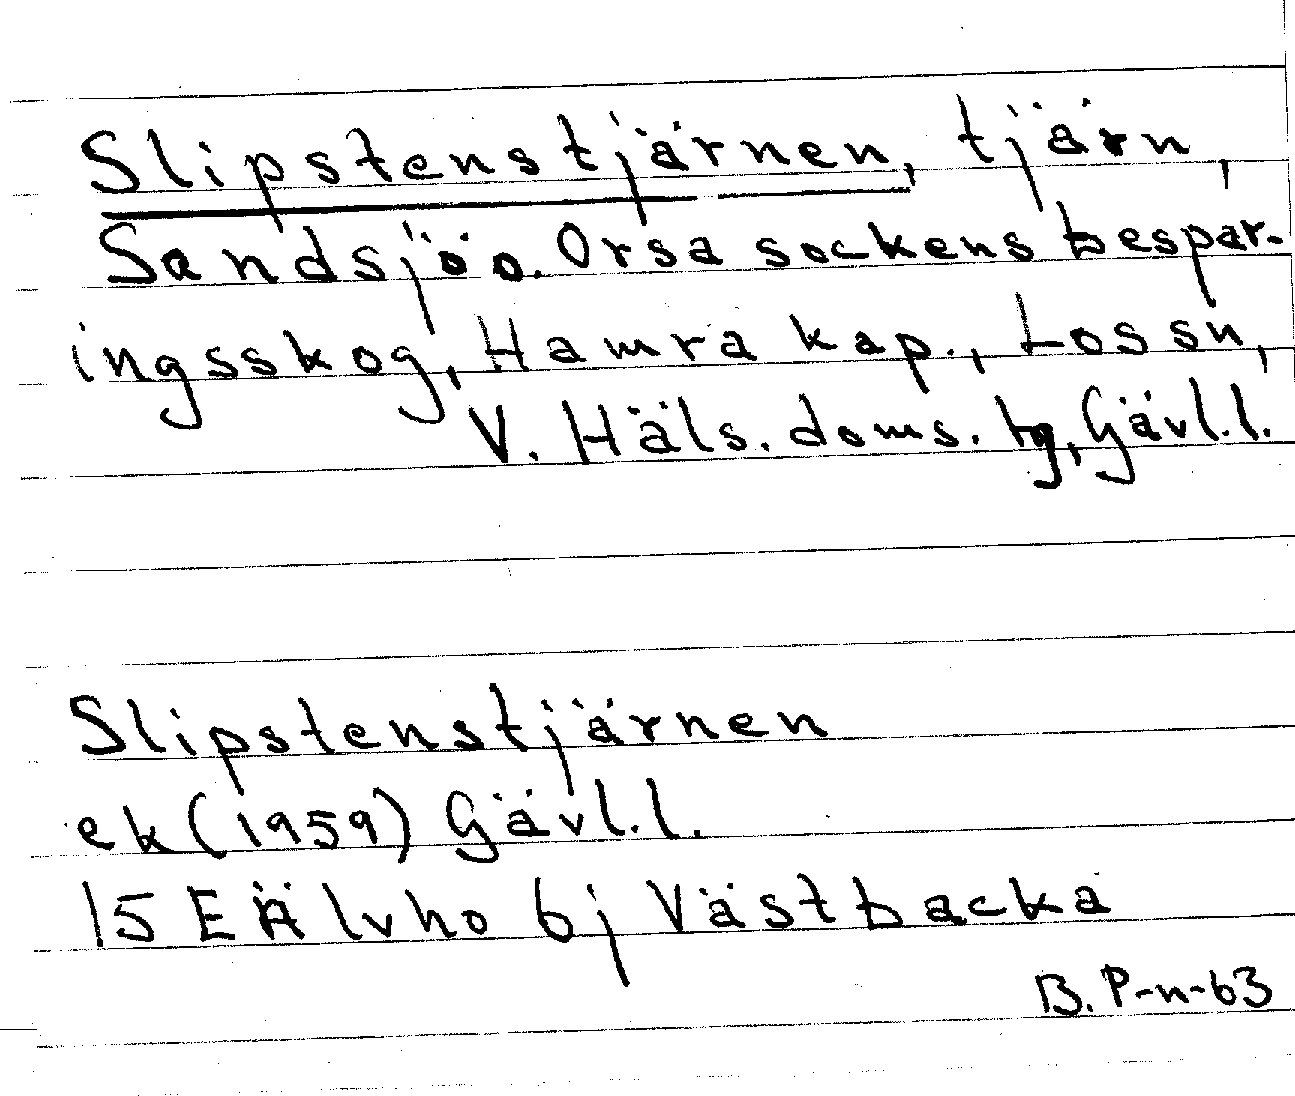 Slipstenstjärnen, tjärn,
Sandsjö o. Orsa sockens bespar-
ingsskog, Hamra kap., Los sn,
V. Häls. doms. tg, Gävl.l.
Slipstenstjärnen
ek (1959) Gävl.l.
15 E Älvho 6j Västbacka
B. P-n-63